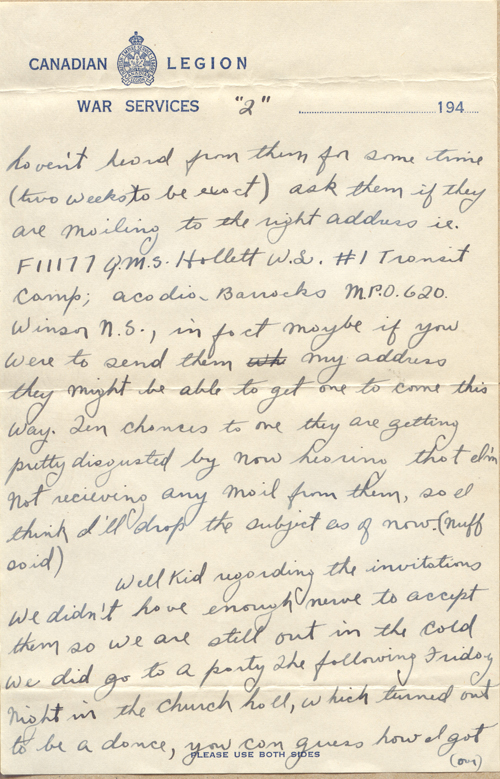 CANADIAN LEGION
WAR SERVICES "2" 194
haven't heard from them for some time
(two weeks to be exact) ask them if they
are mailing to the right address ie.
F11177 Q.M.S. Hollett W.L. #1 Transit
Camp; Acadia Barracks M.P.O. 620.
Winsor N.S., in fact maybe if you
were to send them wh my address
they might be able to get one to come this
way. Ten chances to one they are getting
pretty disgusted by now hearing that I'm
not recieving any mail from them, so I
think I'll drop the subject as of now. (Nuff
said)
Well Kid regarding the invitations
we didn't have enough nerve to accept
them so we are still out in the cold
we did go to a party the following Friday
night in the church hall, which turned out
to be a dance, you can guess how I got
PLEASE USE BOTH SIDES
(over)